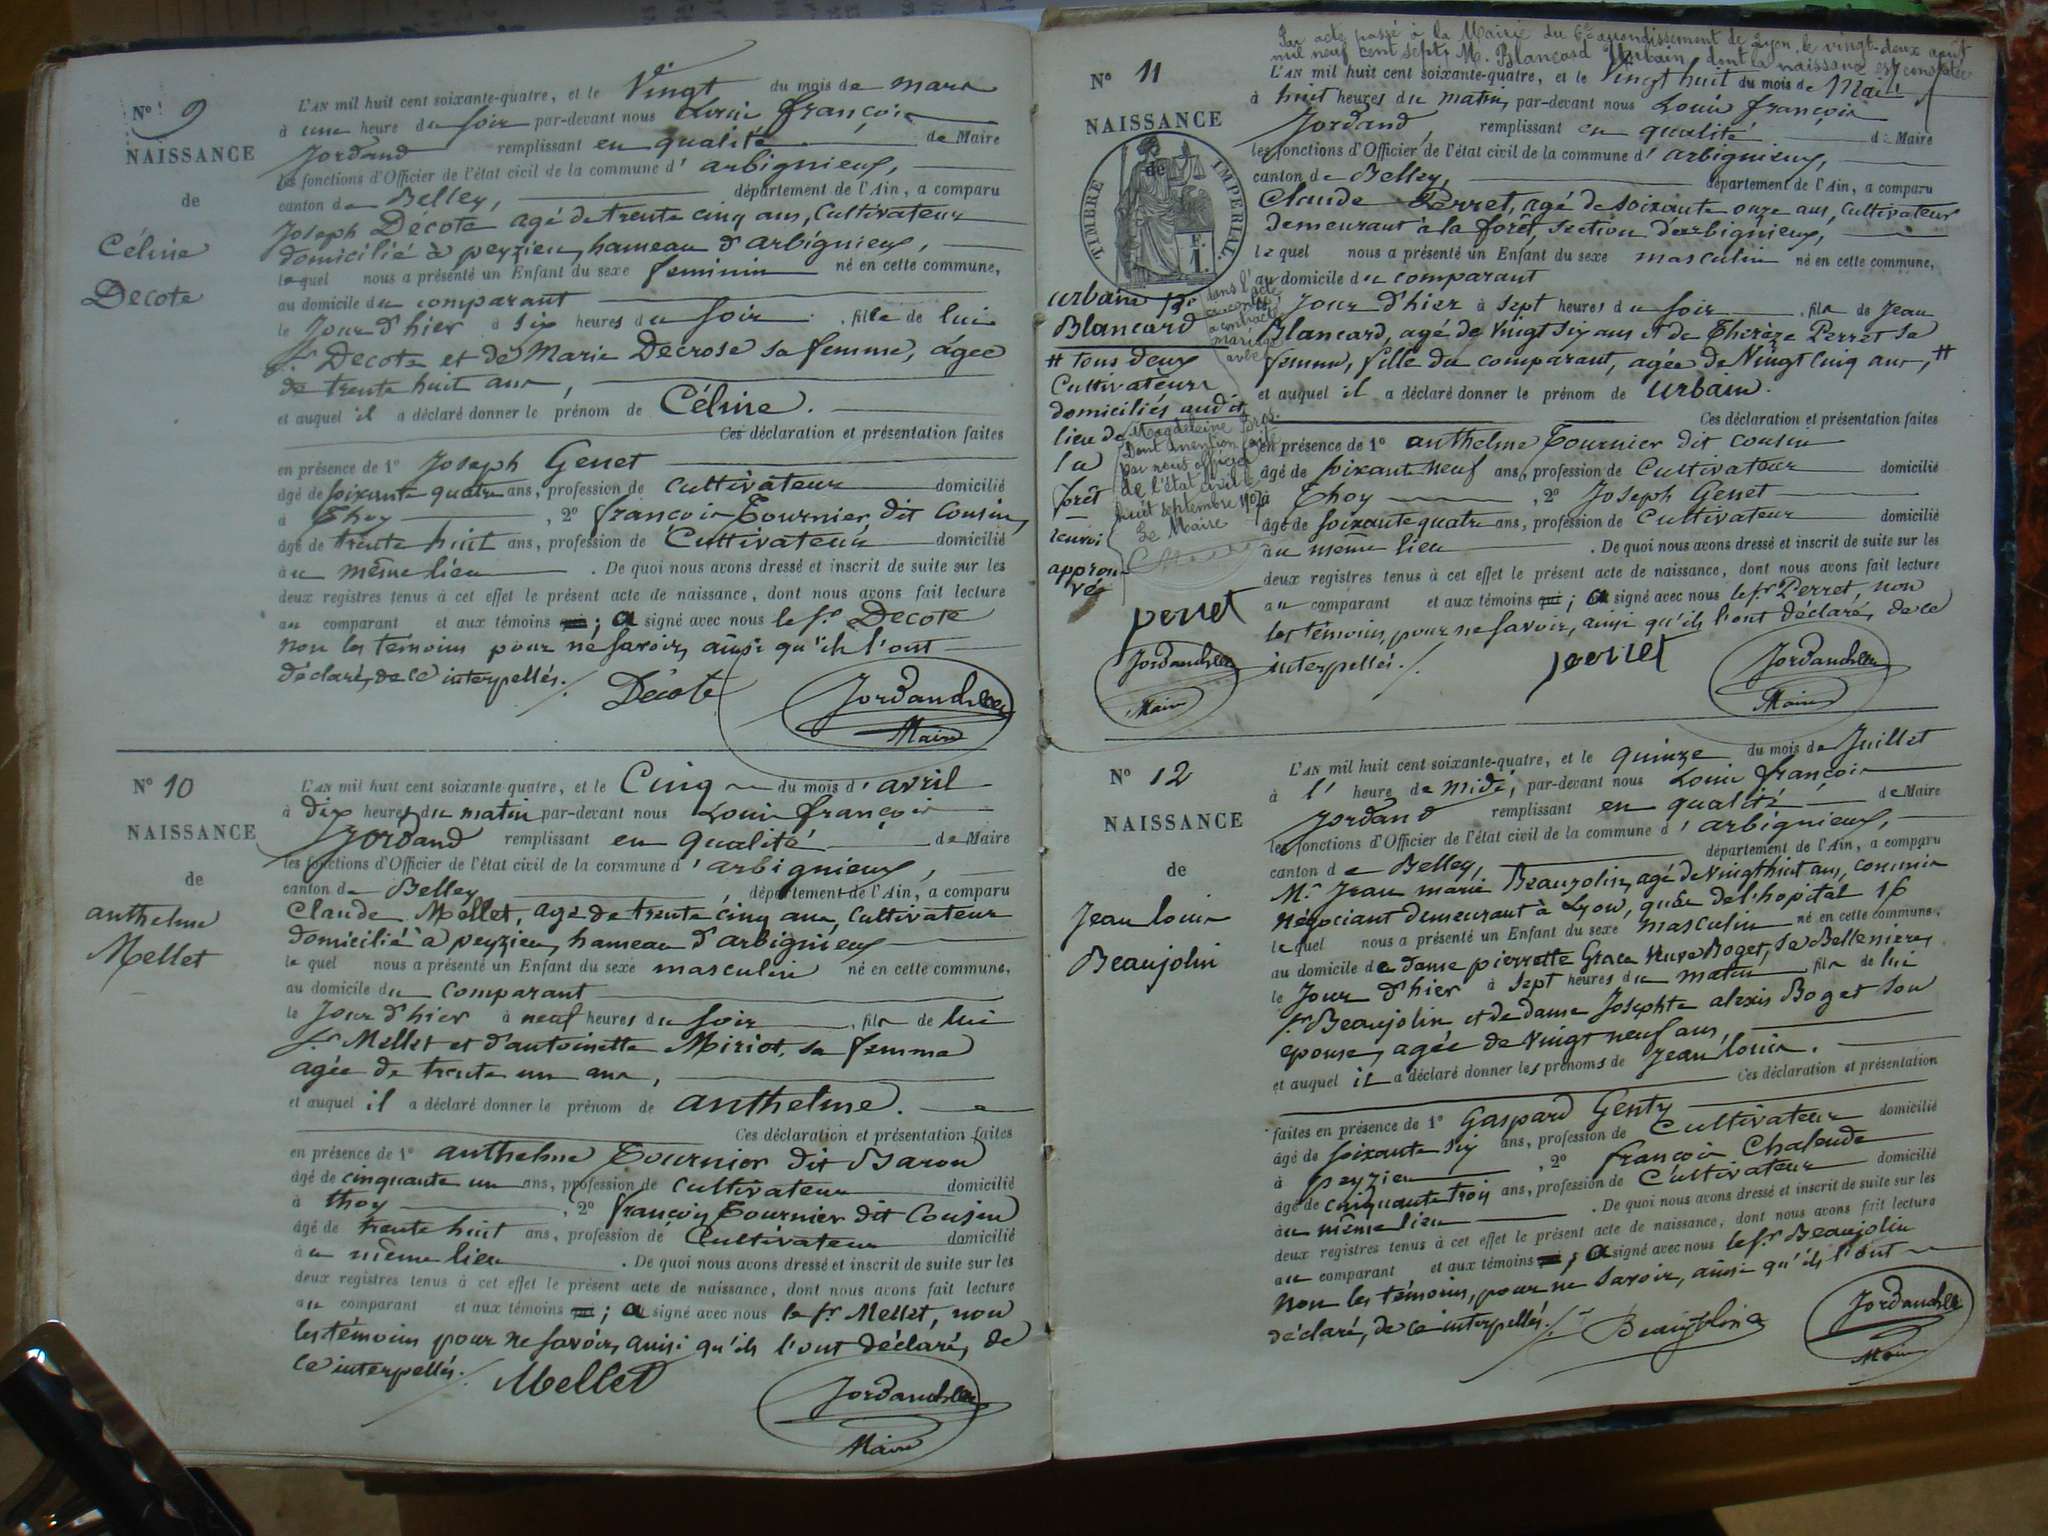 N° 9
NAISSANCE
de
Céline
Decote
L'AN mil huit cent soixante-quatre, et le Vingt du mois de mars
à une heure du soir par-devant nous Louis françois
Jordand remplissant en qualité de Maire
les fonctions d'Officier de l'état civil de la commune d'arbignieux,
canton de Belley, département de l'Ain, a comparu
Joseph Décote agé de trente cinq ans, Cultivateur
domicilié à peyzieu, hameau d'arbignieux,
lequel nous a présenté un Enfant du sexe feminin né en cette commune,
au domicile du comparant
le Jour d'hier à six heures du soir, fille de lui
Sr. Decote et de Marie Decrose sa femme, agée
de trente huit ans,
et auquel il a déclaré donner le prénom de Céline.
Ces déclaration et présentation faites
en présence de 1° Joseph Genet
âgé de soixante quatre ans, profession de cultivateur domicilié
à Thoy, 2° françois Tournier dit Cousin,
âgé de trente huit ans, profession de Cultivateur domicilié
au même lieu. De quoi nous avons dressé et inscrit de suite sur les
deux registres tenus à cet effet le présent acte de naissance, dont nous avons fait lecture
au comparant et aux témoins qui; a signé avec nous le Sr. Decote
non les temoins pour ne savoir, ainsi qu'ils l'ont
déclaré, de ce interpellés.
Décote Jordand
Maire
N° 10
NAISSANCE
de
anthelme
Mellet
L'AN mil huit cent soixante-quatre, et le Cinq du mois d'avril
à dix heures du matin par-devant nous Louis françois
Jordand remplissant en qualité de Maire
les fonctions d'Officier de l'état civil de la commune d'arbignieux,
canton de Belley, département de l'Ain, a comparu
Claude Mellet, agé de trente cinq ans, Cultivateur
domicilié à peyzieu, hameau d'arbignieux
lequel nous a présenté un Enfant du sexe masculin né en cette commune,
au domicile du comparant
le Jour d'hier à neuf heures du soir, fils de lui
Sr Mellet et d'antoinette Miriot, sa femme
agée de trente un ans,
et auquel il a déclaré donner le prénom de anthelme.
Ces déclaration et présentation faites
en présence de 1° anthelme Tournier dit Baron
âgé de cinquante un ans, profession de cultivateur domicilié
à thoy, 2° françois Tournier dit Cousin
âgé de trente huit ans, profession de Cultivateur domicilié
au même lieu. De quoi nous avons dressé et inscrit de suite sur les
deux registres tenus à cet effet le présent acte de naissance, dont nous avons fait lecture
au comparant et aux témoins qui; a signé avec nous le Sr Mellet, non
les témoins pour ne savoir, ainsi qu'ils l'ont déclaré, de
ce interpellés.
Mellet Jordand
Maire
Par acte passé à la Mairie du 6e arrondissement de Lyon, le vingt-deux août
mil neuf cent sept, M. Blancard Urbain, dont la naissance est constatée
dans l'acte
ci contre,
a contracté
mariage
avec
Magdeleine
Dont mention faite
par nous officier
de l'état civil le
huit septembre 1907
Le Maire
N° 11
NAISSANCE
de
TIMBRE IMPERIAL
F.
1.
urbain
Blancard
# tous deux
Cultivateurs
domiciliés audit
lieu de
la
forêt
renvoi
approu-
vé
perret
Jordand
Maire
L'AN mil huit cent soixante-quatre, et le Vingt huit du mois de Mai
à huit heures du matin, par-devant nous Louis françois
Jordand, remplissant en qualité de Maire
les fonctions d'Officier de l'état civil de la commune d'arbignieux,
canton de Belley, département de l'Ain, a comparu
Claude Perret, agé de soixante onze ans, Cultivateur
demeurant à la forêt, section d'arbignieux,
lequel nous a présenté un Enfant du sexe masculin né en cette commune,
au domicile du comparant
Jour d'hier à sept heures du soir, fils de Jean
Blancard, agé de vingt six ans et de Thérèze Perret sa
femme, fille du comparant, agée de Vingt Cinq ans, #
et auquel il a déclaré donner le prénom de Urbain.
Ces déclaration et présentation faites
en présence de 1° anthelme Tournier dit cousin
âgé de soixant neuf ans, profession de Cultivateur domicilié
à Thoy, 2° Joseph Genet
âgé de soixante quatre ans, profession de Cultivateur domicilié
au même lieu. De quoi nous avons dressé et inscrit de suite sur les
deux registres tenus à cet effet le présent acte de naissance, dont nous avons fait lecture
au comparant et aux témoins qui; a signé avec nous le sr Perret, non
les témoins, pour ne savoir, ainsi qu'ils l'ont déclaré, de ce
interpellés.
perret Jordand
Maire
N° 12
NAISSANCE
de
Jean louis
Beaujolin
L'AN mil huit cent soixante-quatre, et le quinze du mois de Juillet
à l'heure de midi, par-devant nous Louis françois
Jordand remplissant en qualité de Maire
les fonctions d'Officier de l'état civil de la commune d'arbignieux,
canton de Belley, département de l'Ain, a comparu
Mr. Jean marie Beaujolin, agé de vingt huit ans, commis
négociant demeurant à Lyon, quai de l'hopital 16
lequel nous a présenté un Enfant du sexe masculin né en cette commune,
au domicile de dame pierrette Veuve Boget, sa
le Jour d'hier à sept heures du matin, fils de lui
sr Beaujolin et de dame Josephte alexis Boget son
epouse, agée de vingt neuf ans,
et auquel il a déclaré donner les prénoms de Jean louis.
Ces déclaration et présentation
faites en présence de 1° Gaspard Genty
âgé de soixante six ans, profession de Cultivateur domicilié
à peyzieu, 2° françois Chalende
âgé de cinquante trois ans, profession de Cultivateur domicilié
au même lieu. De quoi nous avons dressé et inscrit de suite sur les
deux registres tenus à cet effet le présent acte de naissance, dont nous avons fait lecture
au comparant et aux témoins qui; a signé avec nous le sr Beaujolin
non les témoins, pour ne savoir, ainsi qu'ils l'ont
déclaré, de ce interpellés.
Beaujolin Jordand
Maire